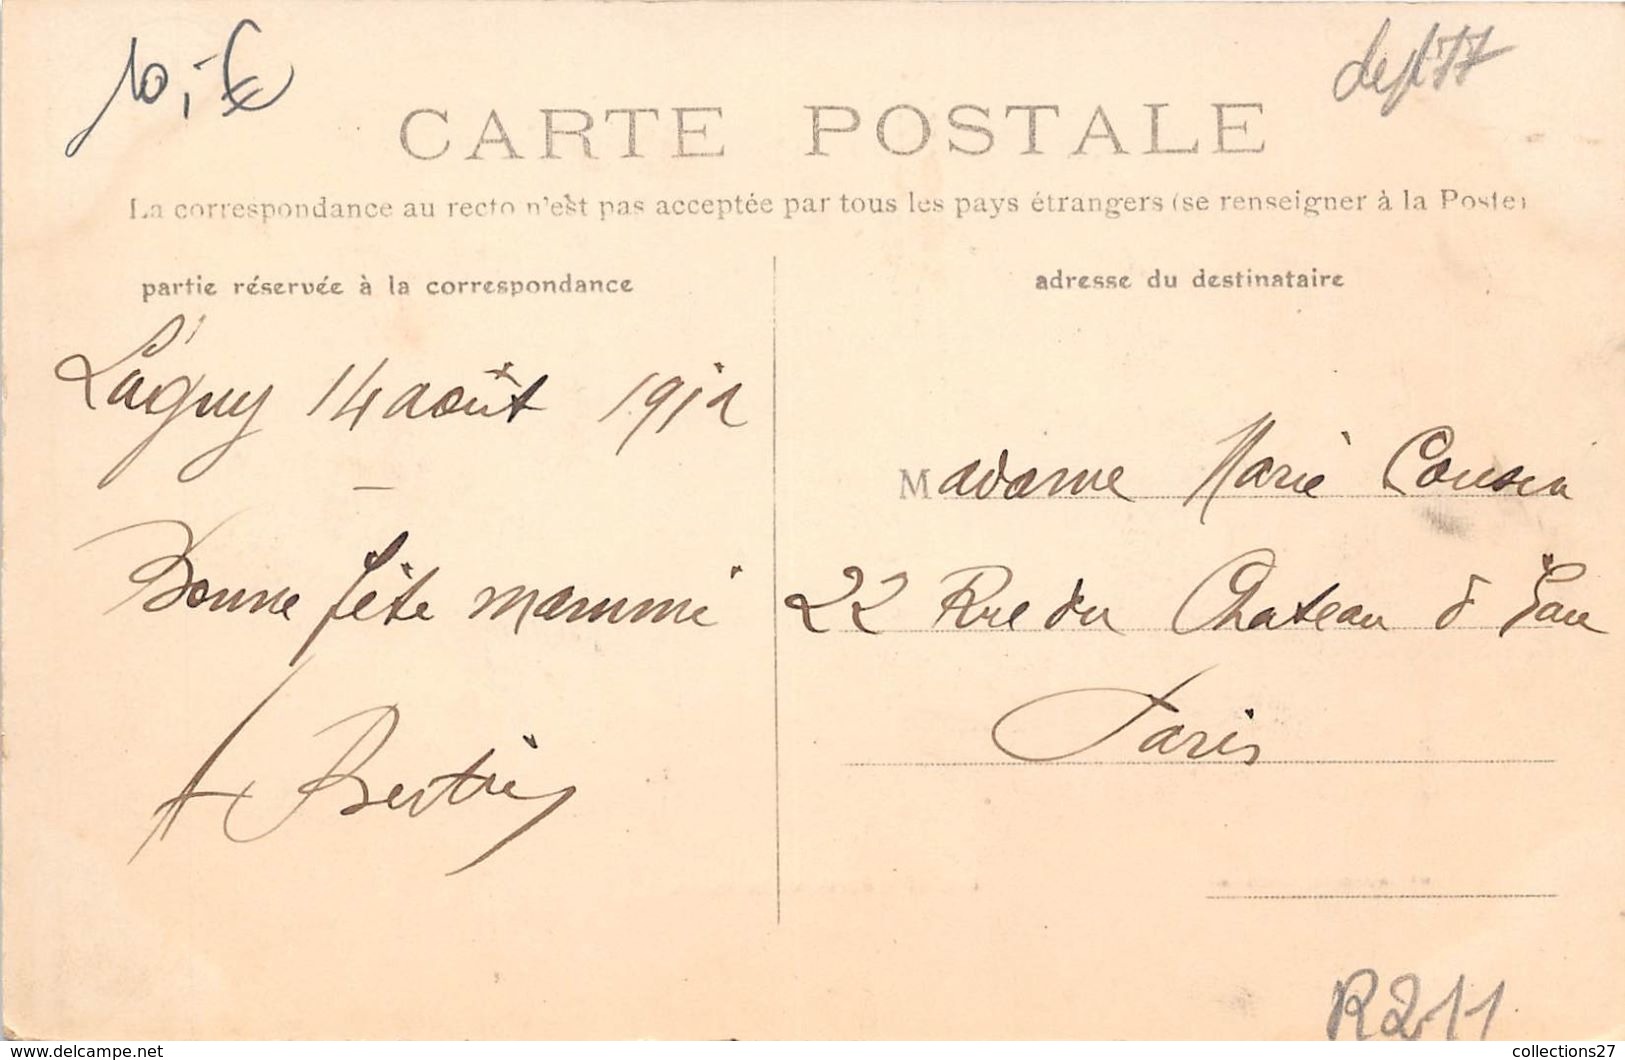 10,-€
dept 77
CARTE POSTALE
La correspondance au recto n'est pas acceptée par tous les pays étrangers (se renseigner à la Poste)
partie réservée à la correspondance
Lagny 14 août 1912
Bonne fête mammi
A Bertin
adresse du destinataire
Madame Marie Cousin
22 Rue du Chateau d'Eau
Paris
R211
collections27